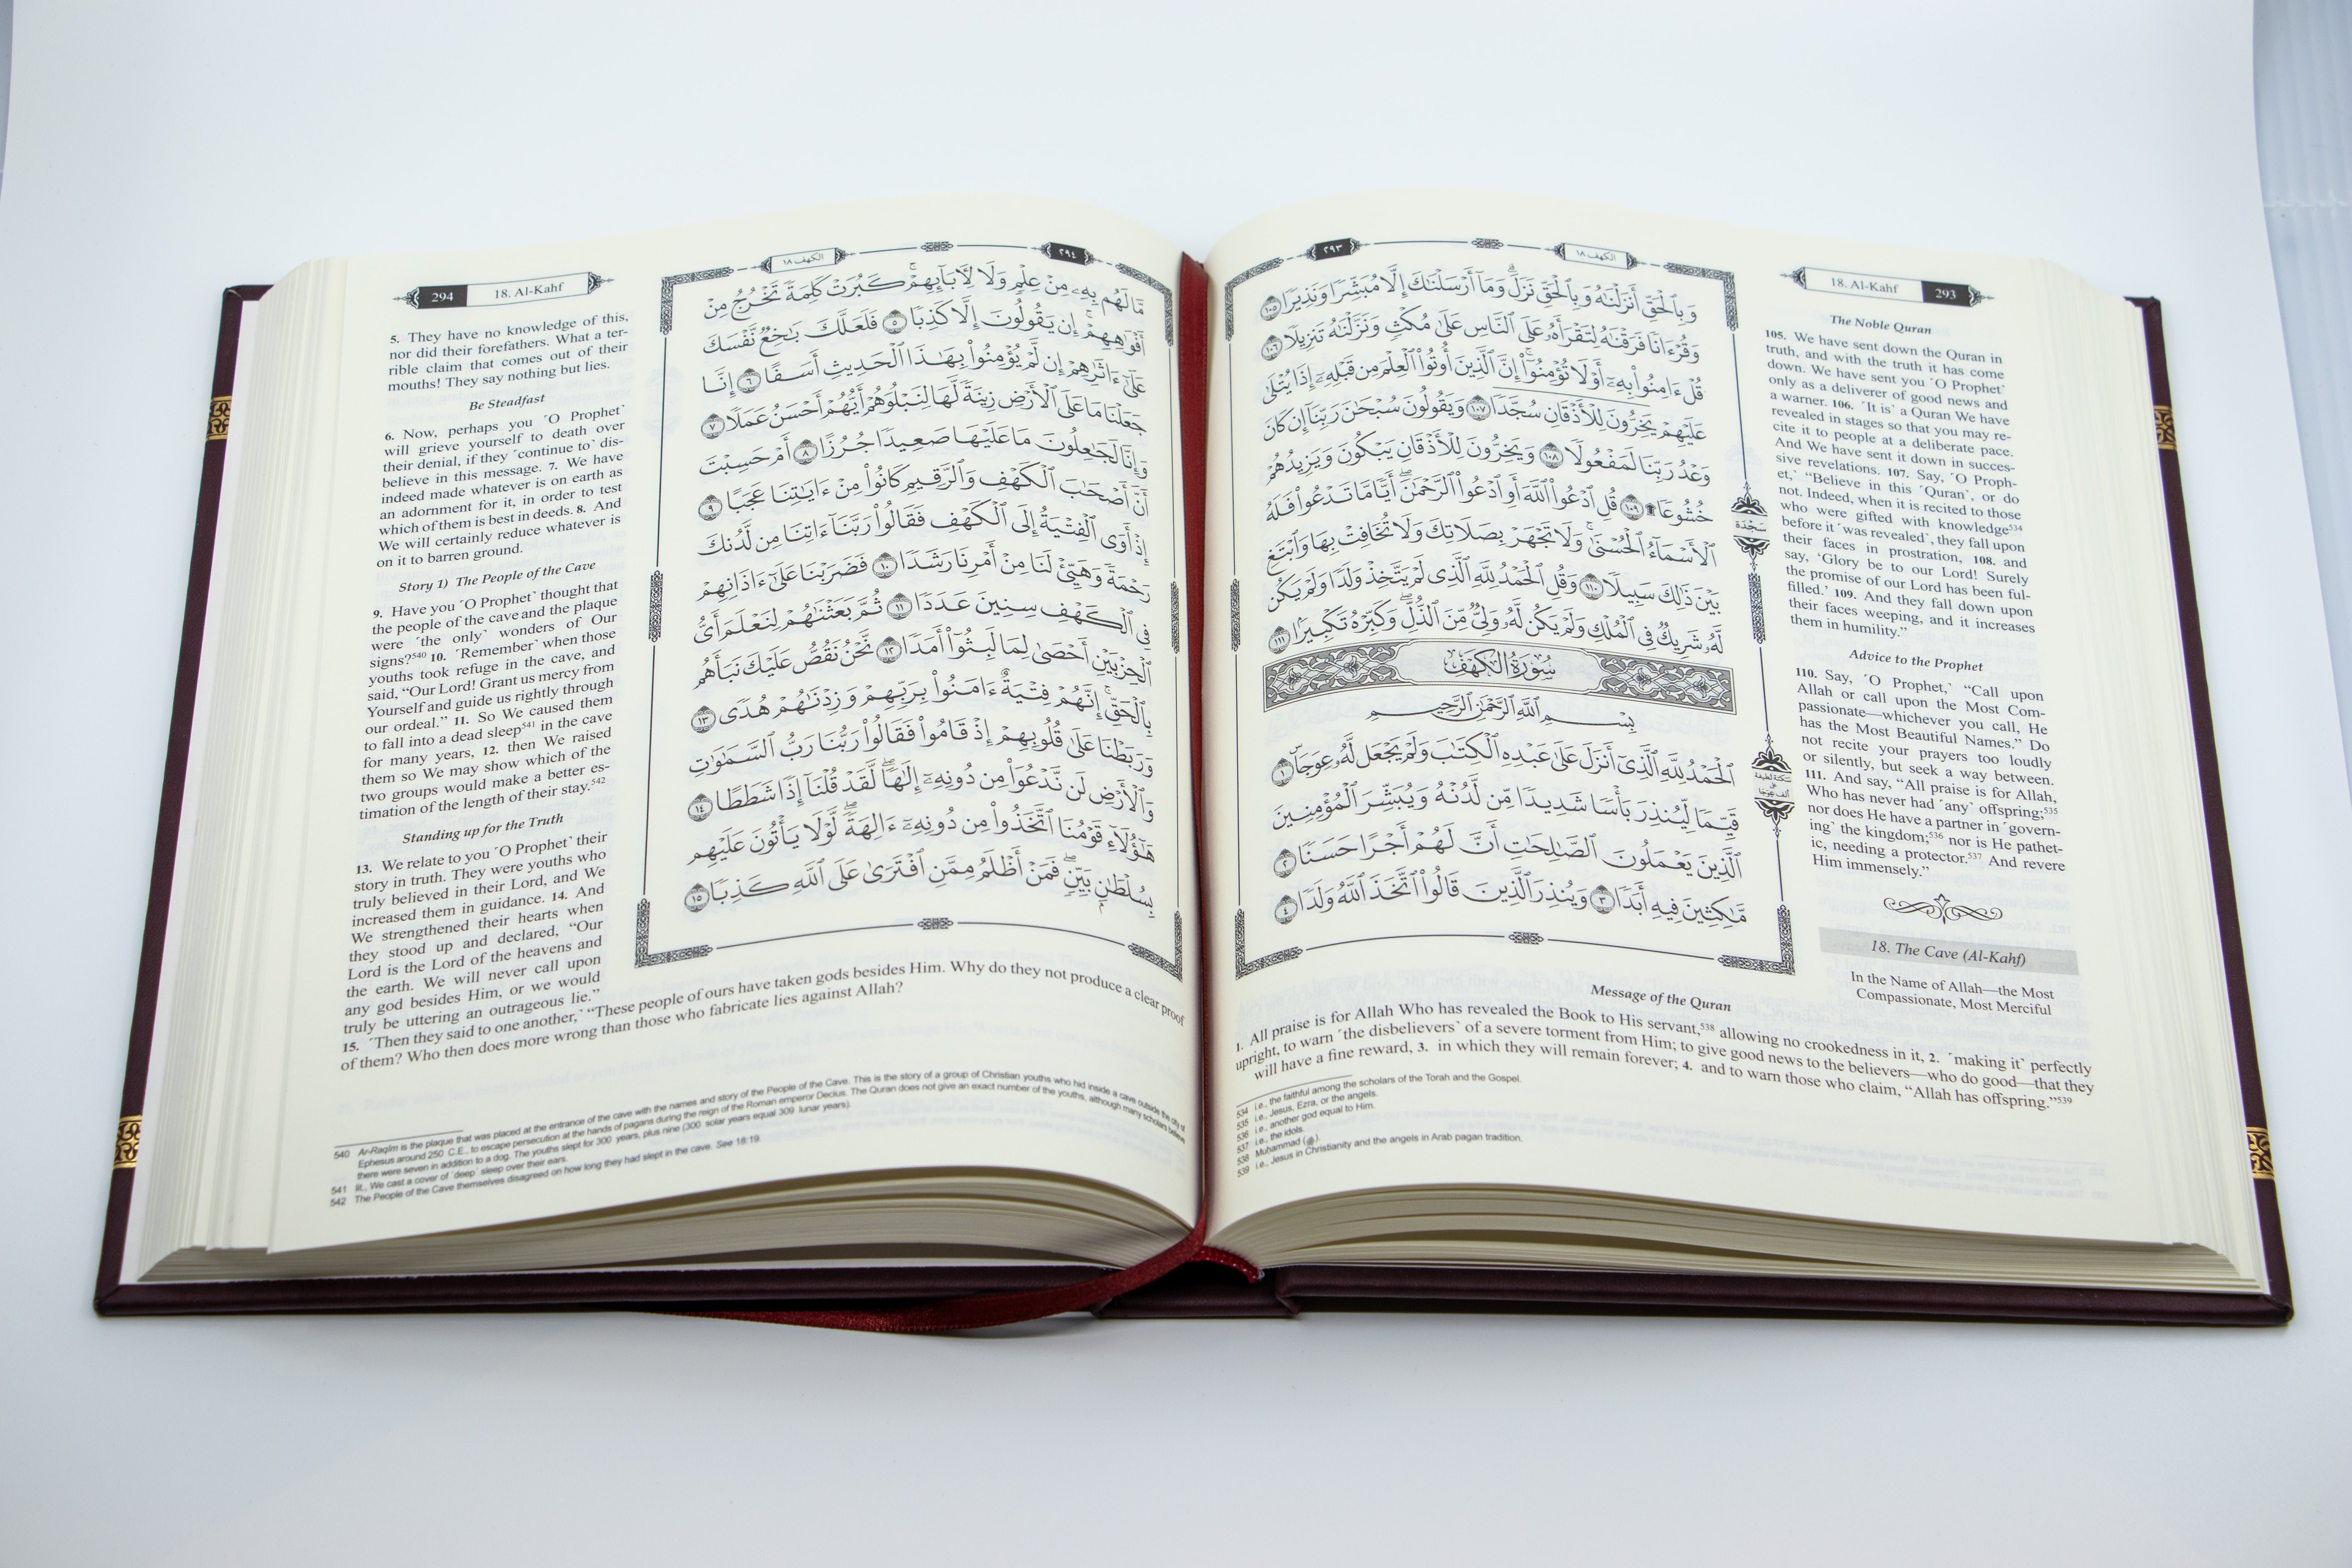 ٢٩٣
الكهف ١٨
وَبِٱلْحَقِّ أَنزَلْنَٰهُ وَبِٱلْحَقِّ نَزَلَۗ وَمَآ أَرْسَلْنَٰكَ إِلَّا مُبَشِّرًا وَنَذِيرًا ١٠٥
وَقُرْءَانًا فَرَقْنَٰهُ لِتَقْرَأَهُۥ عَلَى ٱلنَّاسِ عَلَىٰ مُكْثٍ وَنَزَّلْنَٰهُ تَنزِيلًا ١٠٦
قُلْ ءَامِنُوا۟ بِهِۦٓ أَوْ لَا تُؤْمِنُوٓا۟ۚ إِنَّ ٱلَّذِينَ أُوتُوا۟ ٱلْعِلْمَ مِن قَبْلِهِۦٓ إِذَا يُتْلَىٰ
عَلَيْهِمْ يَخِرُّونَ لِلْأَذْقَانِ سُجَّدًا ١٠٧ وَيَقُولُونَ سُبْحَٰنَ رَبِّنَآ إِن كَانَ
وَعْدُ رَبِّنَا لَمَفْعُولًا ١٠٨ وَيَخِرُّونَ لِلْأَذْقَانِ يَبْكُونَ وَيَزِيدُهُمْ
خُشُوعًا ۩ ١٠٩ قُلِ ٱدْعُوا۟ ٱللَّهَ أَوِ ٱدْعُوا۟ ٱلرَّحْمَٰنَۖ أَيًّا مَّا تَدْعُوا۟ فَلَهُ
ٱلْأَسْمَآءُ ٱلْحُسْنَىٰۚ وَلَا تَجْهَرْ بِصَلَاتِكَ وَلَا تُخَافِتْ بِهَا وَٱبْتَغِ
بَيْنَ ذَٰلِكَ سَبِيلًا ١١٠ وَقُلِ ٱلْحَمْدُ لِلَّهِ ٱلَّذِى لَمْ يَتَّخِذْ وَلَدًا وَلَمْ يَكُن
لَّهُۥ شَرِيكٌ فِى ٱلْمُلْكِ وَلَمْ يَكُن لَّهُۥ وَلِىٌّ مِّنَ ٱلذُّلِّۖ وَكَبِّرْهُ تَكْبِيرًۢا ١١١
سُورَةُ الكَهْف
بِسْمِ ٱللَّهِ ٱلرَّحْمَٰنِ ٱلرَّحِيمِ
ٱلْحَمْدُ لِلَّهِ ٱلَّذِىٓ أَنزَلَ عَلَىٰ عَبْدِهِ ٱلْكِتَٰبَ وَلَمْ يَجْعَل لَّهُۥ عِوَجَاۜ ١
قَيِّمًا لِّيُنذِرَ بَأْسًا شَدِيدًا مِّن لَّدُنْهُ وَيُبَشِّرَ ٱلْمُؤْمِنِينَ
ٱلَّذِينَ يَعْمَلُونَ ٱلصَّٰلِحَٰتِ أَنَّ لَهُمْ أَجْرًا حَسَنًا ٢
مَّٰكِثِينَ فِيهِ أَبَدًا ٣ وَيُنذِرَ ٱلَّذِينَ قَالُوا۟ ٱتَّخَذَ ٱللَّهُ وَلَدًا ٤
سَجْدَة
18. Al-Kahf 293
The Noble Quran
105. We have sent down the Quran in
truth, and with the truth it has come
down. We have sent you ˹O Prophet˺
only as a deliverer of good news and
a warner. 106. ˹It is˺ a Quran We have
revealed in stages so that you may re-
cite it to people at a deliberate pace.
And We have sent it down in succes-
sive revelations. 107. Say, ˹O Proph-
et,˺ “Believe in this ˹Quran˺, or do
not. Indeed, when it is recited to those
who were gifted with knowledge534
before it ˹was revealed˺, they fall upon
their faces in prostration, 108. and
say, ‘Glory be to our Lord! Surely
the promise of our Lord has been ful-
filled.’ 109. And they fall down upon
their faces weeping, and it increases
them in humility.”
Advice to the Prophet
110. Say, ˹O Prophet,˺ “Call upon
Allah or call upon the Most Com-
passionate—whichever you call, He
has the Most Beautiful Names.” Do
not recite your prayers too loudly
or silently, but seek a way between.
111. And say, “All praise is for Allah,
Who has never had ˹any˺ offspring;535
nor does He have a partner in ˹govern-
ing˺ the kingdom;536 nor is He pathet-
ic, needing a protector.537 And revere
Him immensely.”
18. The Cave (Al-Kahf)
In the Name of Allah—the Most
Compassionate, Most Merciful
Message of the Quran
1. All praise is for Allah Who has revealed the Book to His servant,538 allowing no crookedness in it, 2. ˹making it˺ perfectly
upright, to warn ˹the disbelievers˺ of a severe torment from Him; to give good news to the believers—who do good—that they
will have a fine reward, 3. in which they will remain forever; 4. and to warn those who claim, “Allah has offspring.”539
534 i.e., the faithful among the scholars of the Torah and the Gospel.
535 i.e., Jesus, Ezra, or the angels.
536 i.e., another god equal to Him.
537 i.e., the idols.
538 Muhammad (ﷺ).
539 i.e., Jesus in Christianity and the angels in Arab pagan tradition.
٢٩٤
الكهف ١٨
مَّا لَهُم بِهِۦ مِنْ عِلْمٍ وَلَا لِأٓبَآئِهِمْۚ كَبُرَتْ كَلِمَةً تَخْرُجُ مِنْ
أَفْوَٰهِهِمْۚ إِن يَقُولُونَ إِلَّا كَذِبًا ٥ فَلَعَلَّكَ بَٰخِعٌ نَّفْسَكَ
عَلَىٰٓ ءَاثَٰرِهِمْ إِن لَّمْ يُؤْمِنُوا۟ بِهَٰذَا ٱلْحَدِيثِ أَسَفًا ٦ إِنَّا
جَعَلْنَا مَا عَلَى ٱلْأَرْضِ زِينَةً لَّهَا لِنَبْلُوَهُمْ أَيُّهُمْ أَحْسَنُ عَمَلًا ٧
وَإِنَّا لَجَٰعِلُونَ مَا عَلَيْهَا صَعِيدًا جُرُزًا ٨ أَمْ حَسِبْتَ
أَنَّ أَصْحَٰبَ ٱلْكَهْفِ وَٱلرَّقِيمِ كَانُوا۟ مِنْ ءَايَٰتِنَا عَجَبًا ٩
إِذْ أَوَى ٱلْفِتْيَةُ إِلَى ٱلْكَهْفِ فَقَالُوا۟ رَبَّنَآ ءَاتِنَا مِن لَّدُنكَ
رَحْمَةً وَهَيِّئْ لَنَا مِنْ أَمْرِنَا رَشَدًا ١٠ فَضَرَبْنَا عَلَىٰٓ ءَاذَانِهِمْ
فِى ٱلْكَهْفِ سِنِينَ عَدَدًا ١١ ثُمَّ بَعَثْنَٰهُمْ لِنَعْلَمَ أَىُّ
ٱلْحِزْبَيْنِ أَحْصَىٰ لِمَا لَبِثُوٓا۟ أَمَدًا ١٢ نَّحْنُ نَقُصُّ عَلَيْكَ نَبَأَهُم
بِٱلْحَقِّۚ إِنَّهُمْ فِتْيَةٌ ءَامَنُوا۟ بِرَبِّهِمْ وَزِدْنَٰهُمْ هُدًى ١٣
وَرَبَطْنَا عَلَىٰ قُلُوبِهِمْ إِذْ قَامُوا۟ فَقَالُوا۟ رَبُّنَا رَبُّ ٱلسَّمَٰوَٰتِ
وَٱلْأَرْضِ لَن نَّدْعُوَا۟ مِن دُونِهِۦٓ إِلَٰهًاۖ لَّقَدْ قُلْنَآ إِذًا شَطَطًا ١٤
هَٰٓؤُلَآءِ قَوْمُنَا ٱتَّخَذُوا۟ مِن دُونِهِۦٓ ءَالِهَةًۖ لَّوْلَا يَأْتُونَ عَلَيْهِم
بِسُلْطَٰنٍۭ بَيِّنٍۖ فَمَنْ أَظْلَمُ مِمَّنِ ٱفْتَرَىٰ عَلَى ٱللَّهِ كَذِبًا ١٥
294 18. Al-Kahf
5. They have no knowledge of this,
nor did their forefathers. What a ter-
rible claim that comes out of their
mouths! They say nothing but lies.
Be Steadfast
6. Now, perhaps you ˹O Prophet˺
will grieve yourself to death over
their denial, if they ˹continue to˺ dis-
believe in this message. 7. We have
indeed made whatever is on earth as
an adornment for it, in order to test
which of them is best in deeds. 8. And
We will certainly reduce whatever is
on it to barren ground.
Story 1) The People of the Cave
9. Have you ˹O Prophet˺ thought that
the people of the cave and the plaque
were ˹the only˺ wonders of Our
signs?540 10. ˹Remember˺ when those
youths took refuge in the cave, and
said, “Our Lord! Grant us mercy from
Yourself and guide us rightly through
our ordeal.” 11. So We caused them
to fall into a dead sleep541 in the cave
for many years, 12. then We raised
them so We may show which of the
two groups would make a better es-
timation of the length of their stay.542
Standing up for the Truth
13. We relate to you ˹O Prophet˺ their
story in truth. They were youths who
truly believed in their Lord, and We
increased them in guidance. 14. And
We strengthened their hearts when
they stood up and declared, “Our
Lord is the Lord of the heavens and
the earth. We will never call upon
any god besides Him, or we would
truly be uttering an outrageous lie.”
15. ˹Then they said to one another,˺ “These people of ours have taken gods besides Him. Why do they not produce a clear proof
of them? Who then does more wrong than those who fabricate lies against Allah?
540 Ar-Raqîm is the plaque that was placed at the entrance of the cave with the names and story of the People of the Cave. This is the story of a group of Christian youths who hid inside a cave outside the city of
Ephesus around 250 C.E., to escape persecution at the hands of pagans during the reign of the Roman emperor Decius. The Quran does not give an exact number of the youths, although many scholars believe
there were seven in addition to a dog. The youths slept for 300 years, plus nine (300 solar years equal 309 lunar years).
541 lit., We cast a cover of ˹deep˺ sleep over their ears.
542 The People of the Cave themselves disagreed on how long they had slept in the cave. See 18:19.